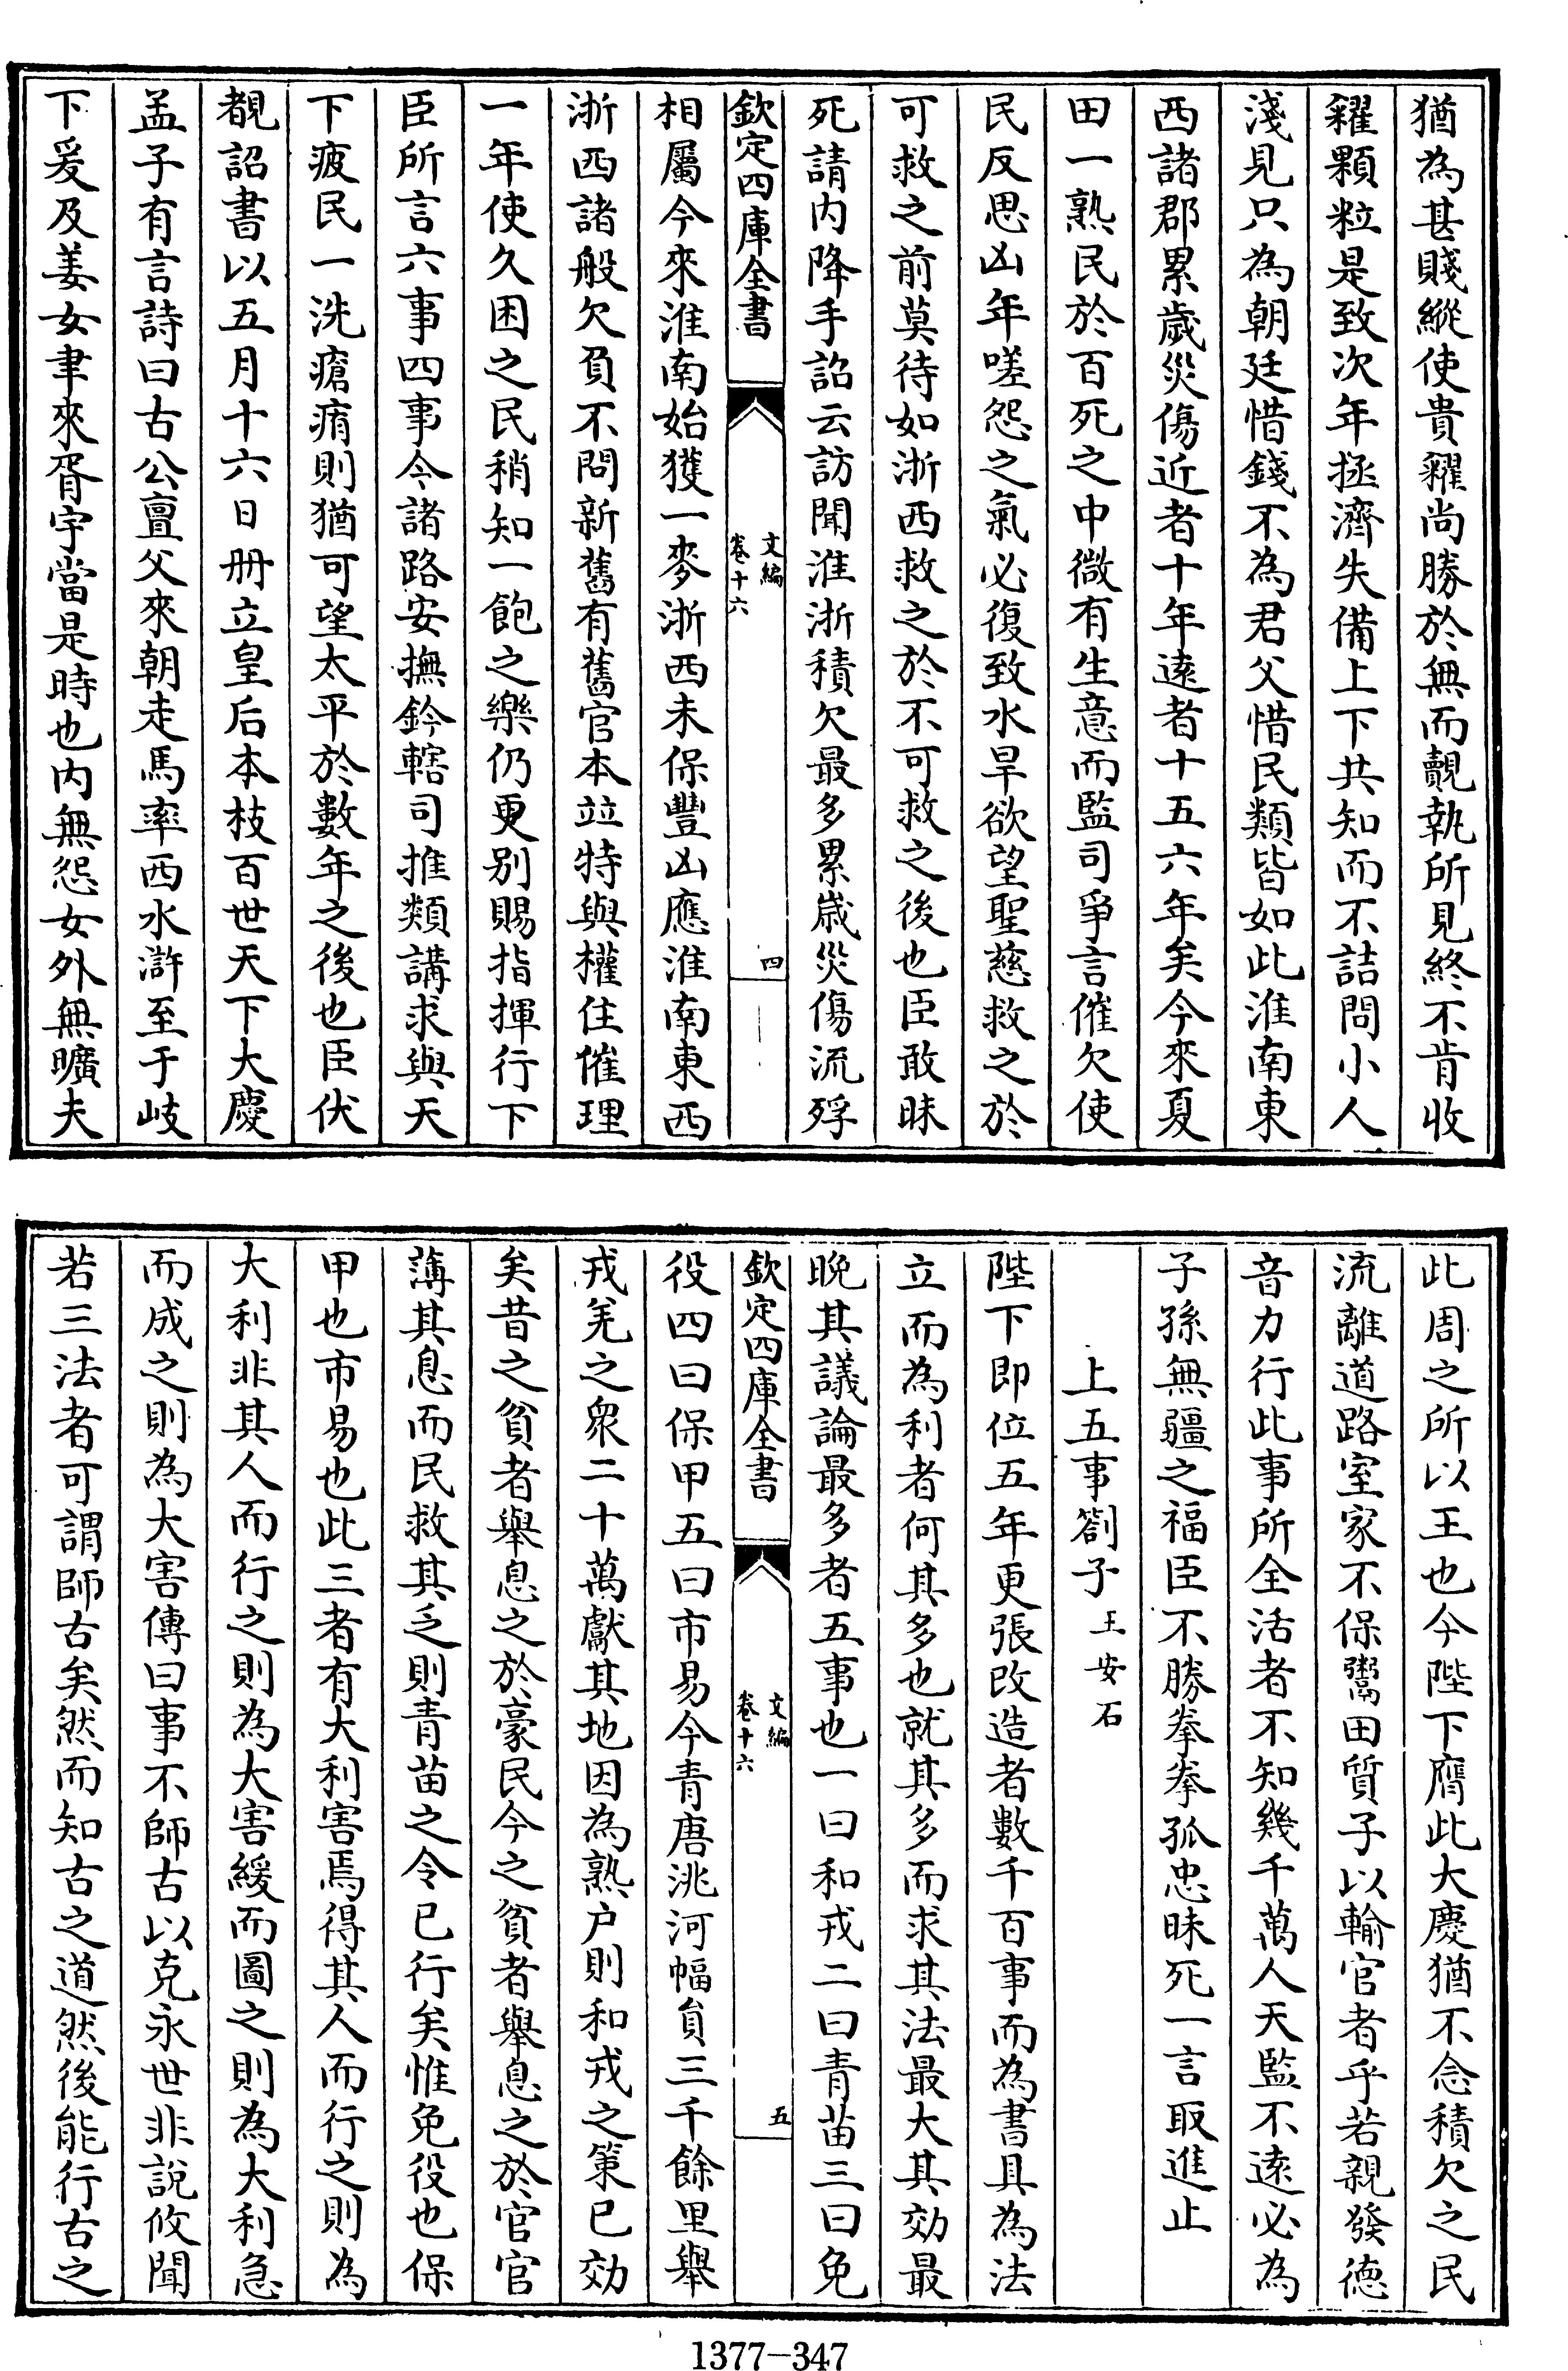 猶為甚賤縱使貴糴尚勝於無而覿執所見終不肯收
糴顆粒是致次年拯濟失備上下共知而不詰問小人
淺見只為朝廷惜錢不為君父惜民類皆如此淮南東
西諸郡累歲災傷近者十年遠者十五六年矣今來夏
田一熟民於百死之中微有生意而監司爭言催欠使
民反思凶年嗟怨之氣必復致水旱欲望聖慈救之於
可救之前莫待如浙西救之於不可救之後也臣敢昧
死請内降手詔云訪聞淮浙積欠最多累歲災傷流殍
欽定四庫全書
文編
卷十六
四
相屬今來淮南始獲一麥浙西未保豐凶應淮南東西
浙西諸般欠負不問新舊有舊官本竝特與權住催理
一年使久困之民稍知一飽之樂仍更别賜指揮行下
臣所言六事四事令諸路安撫鈐轄司推類講求與天
下疲民一洗瘡痏則猶可望太平於數年之後也臣伏
覩詔書以五月十六日册立皇后本枝百世天下大慶
孟子有言詩曰古公亶父來朝走馬率西水滸至于岐
下爰及姜女聿來胥宇當是時也内無怨女外無曠夫
此周之所以王也今陛下膺此大慶猶不念積欠之民
流離道路室家不保鬻田質子以輸官者乎若親發德
音力行此事所全活者不知幾千萬人天監不遠必為
子孫無疆之福臣不勝拳拳孤忠昧死一言取進止
上五事劄子王安石
陛下即位五年更張改造者數千百事而為書具為法
立而為利者何其多也就其多而求其法最大其効最
晚其議論最多者五事也一曰和戎二曰青苗三曰免
欽定四庫全書
文編
卷十六
五
役四曰保甲五曰市易今青唐洮河幅員三千餘里舉
戎羌之衆二十萬獻其地因為熟户則和戎之策已効
矣昔之貧者舉息之於豪民今之貧者舉息之於官官
薄其息而民救其乏則青苗之令已行矣惟免役也保
甲也市易也此三者有大利害焉得其人而行之則為
大利非其人而行之則為大害緩而圖之則為大利急
而成之則為大害傳曰事不師古以克永世非說攸聞
若三法者可謂師古矣然而知古之道然後能行古之
1377-347